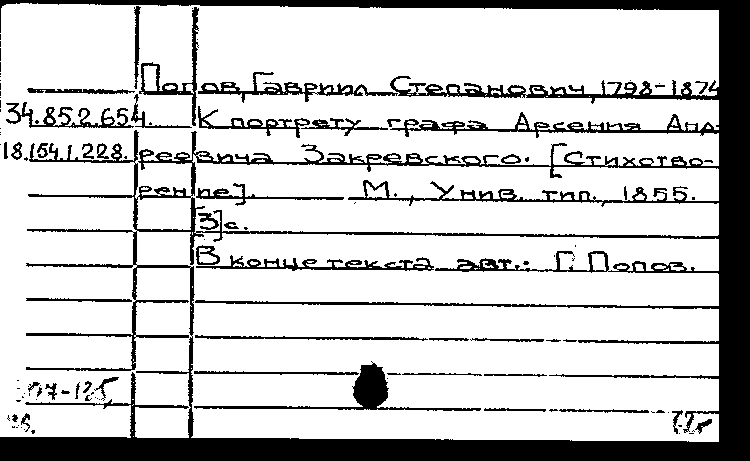 Попов, Гавриил Степанович, 1798-1874
34.85.2.654. К портрету графа Арсения Анд-
18.154.1.228. реевича Закревского. [Стихотво-
рение]. М., Унив. тип., 1855.
[3]с.
В конце текста авт.: Г. Попов.